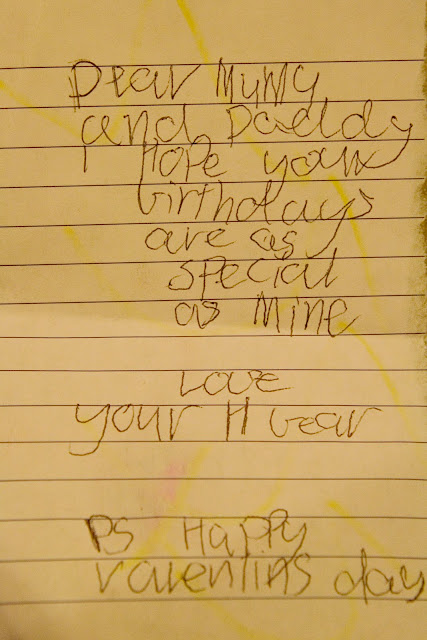 Dear Mumy
and Daddy
I Hope your
birthdays
are as
special
as Mine
Love
your H bear
PS Happy
valentins day